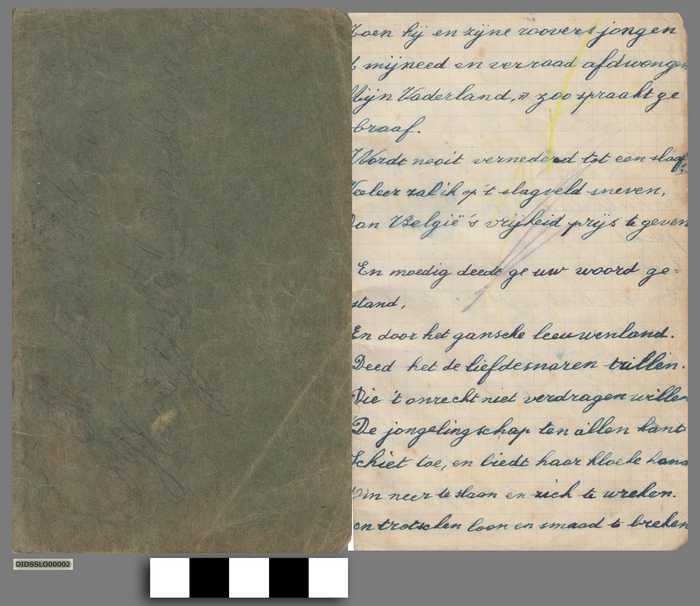 Toen hij en zijne roovers jongen
mijneed en verraad afdwongen
Mijn Vaderland, zoo spraakt ge
braaf.
Wordt nooit vernederd tot een slaaf
Veeleer zal ik op 't slagveld sneven,
Dan België's vrijheid prijs te geven
En moedig deede ge uw woord ge-
stand,
En door het gansche leeuwenland.
Deed het de liefdesnaren trillen.
Die 't onrecht niet verdragen willen
De jongelingschap ten allen kant
Schiet toe, en biedt haar kloeke hand
Om neer te slaan en zich te wreken.
en trotschen loon en smaad te breken
DIDSSLO00002